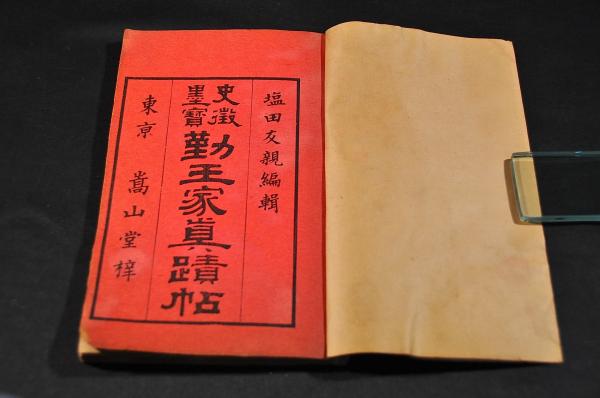 塩田友親編輯
史徴
墨寶
勤王家眞蹟帖
東亰 嵩山堂梓